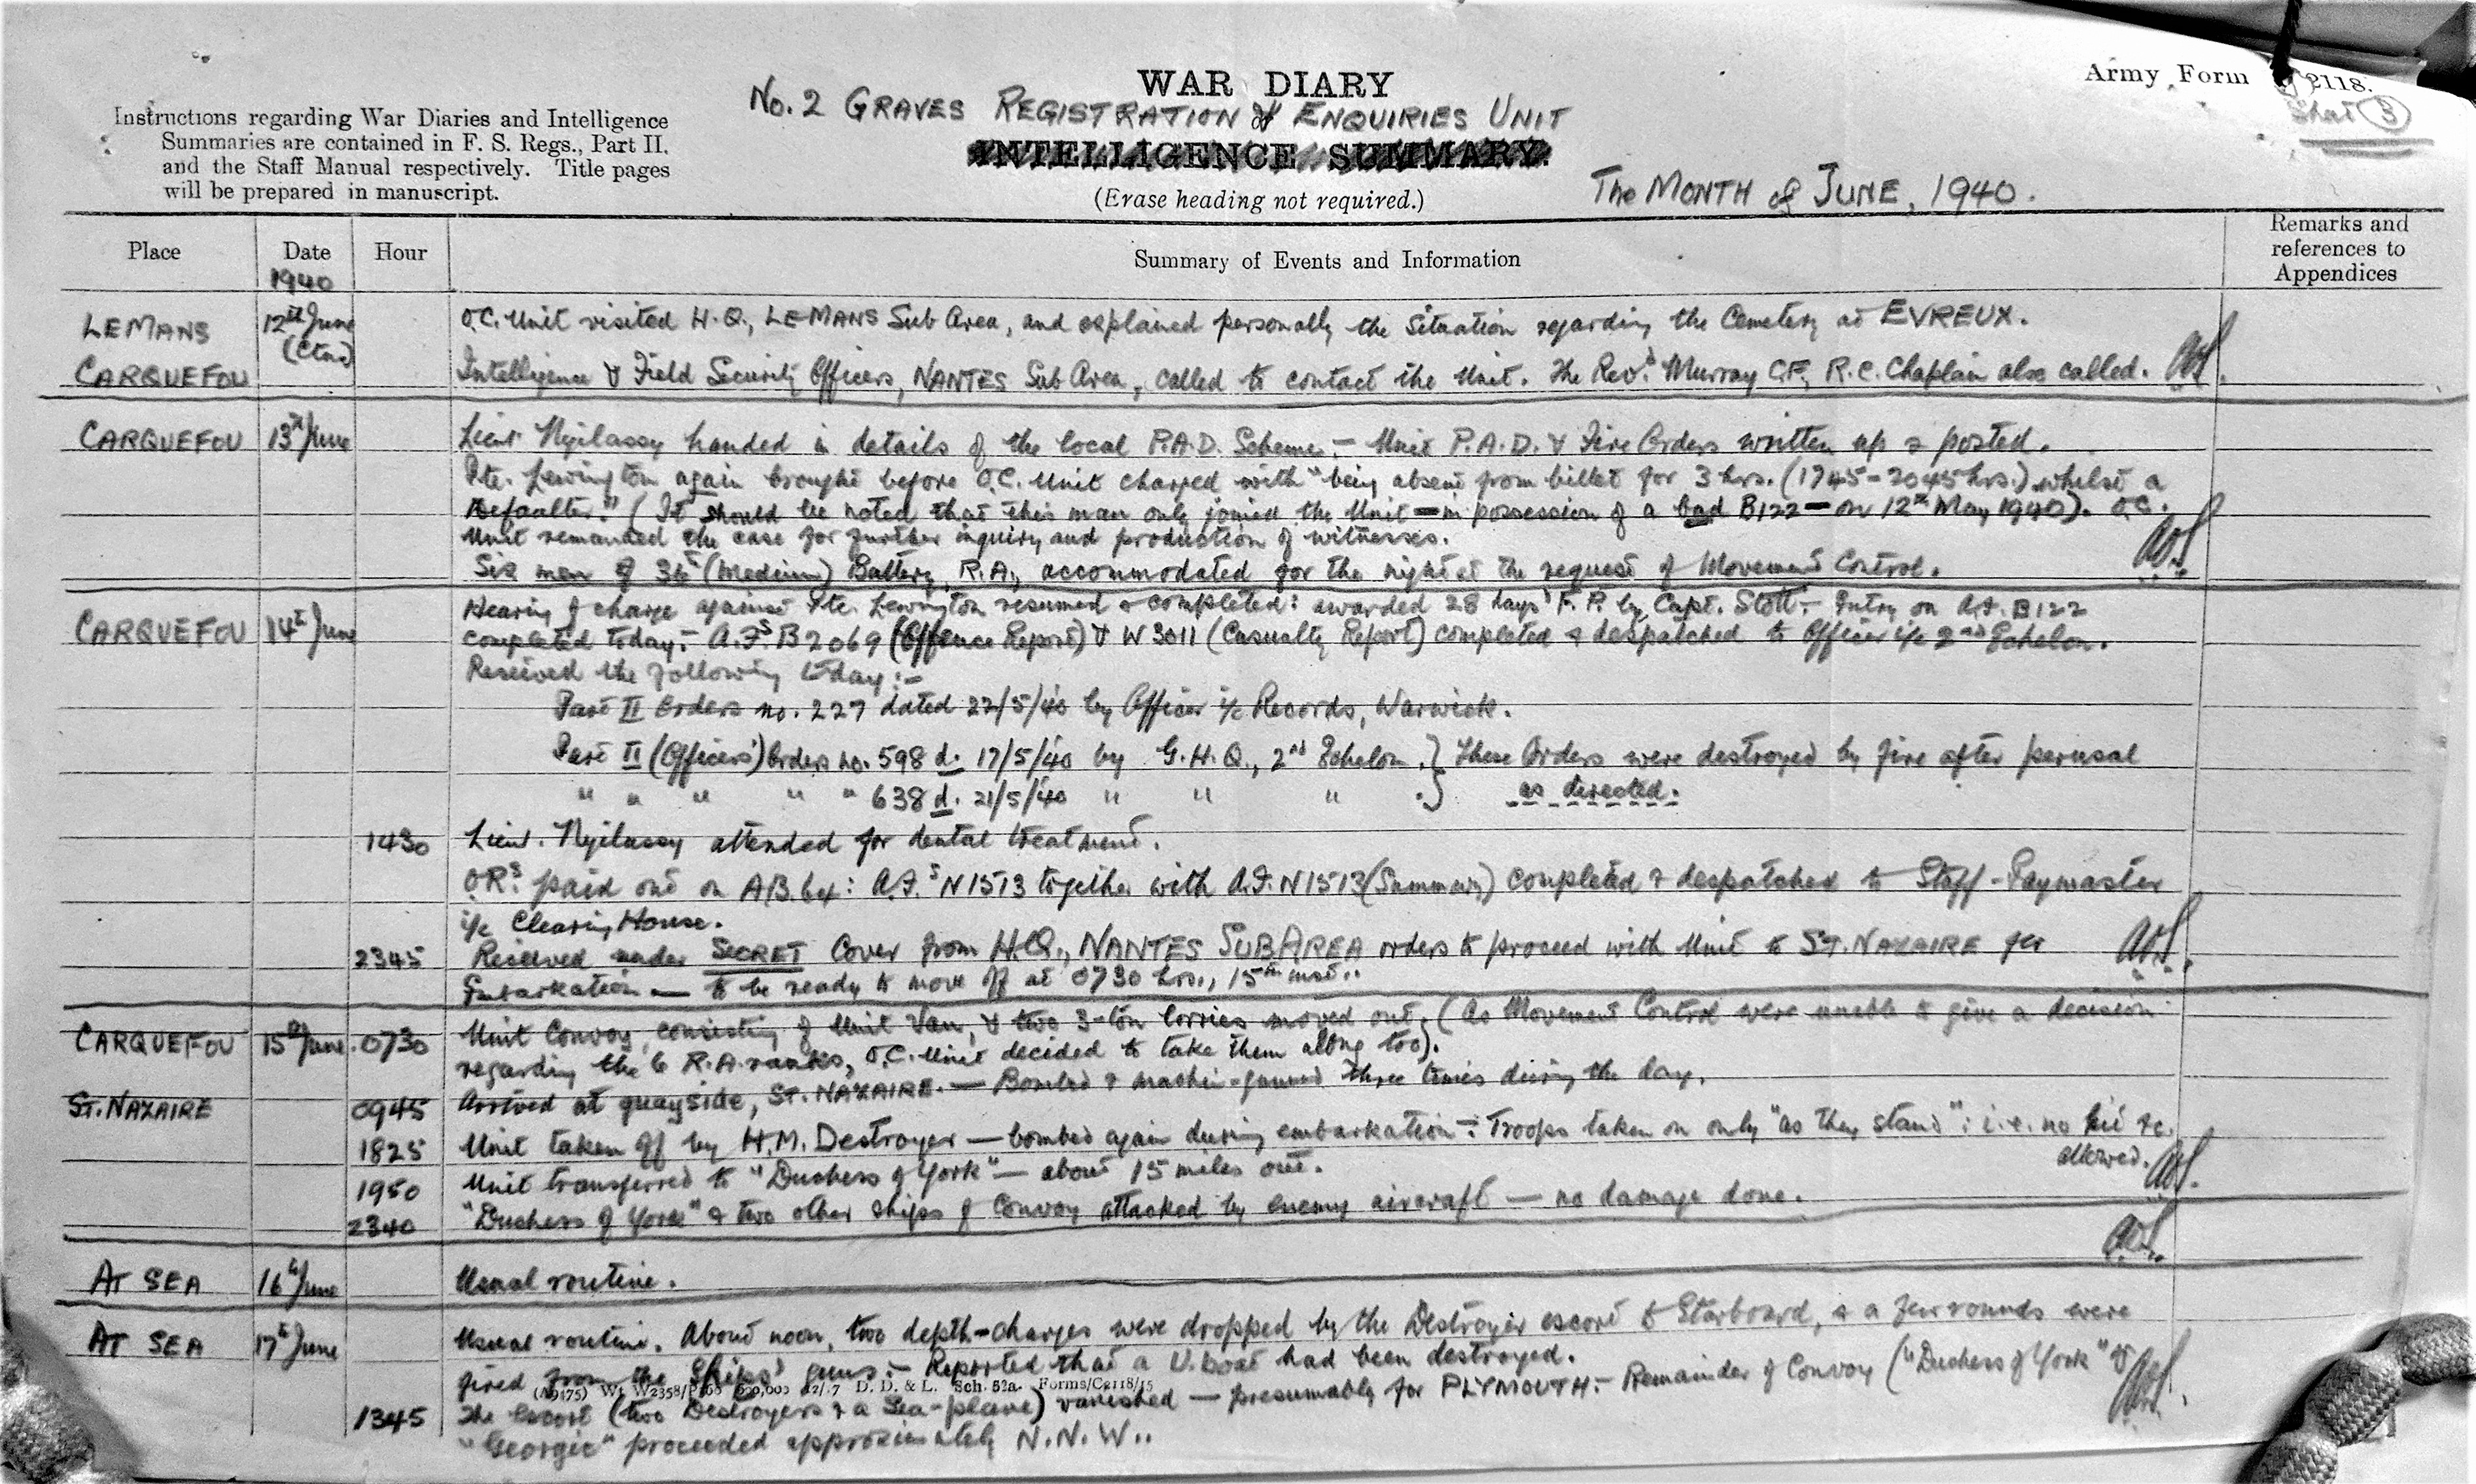 WAR DIARY
Army Form C 2118.
No. 2 GRAVES REGISTRATION & ENQUIRIES UNIT
Sheet 3
Instructions regarding War Diaries and Intelligence
Summaries are contained in F. S. Regs., Part II.
and the Staff Manual respectively. Title pages
will be prepared in manuscript.
INTELLIGENCE SUMMARY.
(Erase heading not required.)
The MONTH of JUNE, 1940.
Place Date Hour Summary of Events and Information Remarks and references to Appendices
1940
LE MANS 12th June (Ctnd) O.C. Unit visited H.Q., LE MANS Sub Area, and explained personally the situation regarding the Cemetery at EVREUX.
CARQUEFOU Intelligence & Field Security Officers, NANTES Sub Area, called to contact the Unit. The Revd. Murray C.F., R.C. Chaplain also called.
CARQUEFOU 13th June Lieut Nyilassy handed in details of the local P.A.D. Scheme. - Unit P.A.D. & Fire Orders written up & posted.
Pte. Lewington again brought before O.C. Unit charged with "being absent from billet for 3 hrs. (1745-2045 hrs.) whilst a
Defaulter." (It should be noted that this man only joined the Unit - in possession of a bad B122 - on 12th May 1940). O.C.
Unit remanded the case for further inquiry and production of witnesses.
Six men of 36th (Medium) Battery, R.A., accommodated for the night at the request of Movement Control.
CARQUEFOU 14th June Hearing of charge against Pte. Lewington resumed & completed: awarded 28 days' F.P. by Capt. Stott. - Entry on A.F. B122
completed today. - A.Fs B2069 (Offence Report) & W3011 (Casualty Report) completed & despatched to Officer i/c 2nd Echelon.
Received the following today :-
Part II Orders no. 227 dated 22/5/40 by Officer i/c Records, Warwick.
Part II (Officers') Orders no. 598 d. 17/5/40 by G.H.Q., 2nd Echelon. } These Orders were destroyed by fire after perusal
" " " " " 638 d. 21/5/40 " " " .} as directed.
1430 Lieut. Nyilassy attended for dental treatment.
O.Rs. paid out on A.B. 64: A.F.s N1513 together with A.F. N1513 (Summary) completed & despatched to Staff-Paymaster
i/c Clearing House.
2345 Received under SECRET Cover from H.Q., NANTES SUB AREA orders to proceed with Unit to ST. NAZAIRE for
Embarkation — to be ready to move off at 0730 hrs., 15th inst..
CARQUEFOU 15th June 0730 Unit Convoy, consisting of Unit Van, & two 3-ton lorries moved out, (As Movement Control were unable to give a decision
regarding the 6 R.A. ranks, O.C. Unit decided to take them along too).
ST. NAZAIRE 0945 Arrived at quayside, ST. NAZAIRE. — Bombed & machine-gunned three times during the day.
1825 Unit taken off by H.M. Destroyer — bombed again during embarkation - Troops taken on only "as they stand": i.e. no kit &c.
allowed.
1950 Unit transferred to "Duchess of York" — about 15 miles out.
2340 "Duchess of York" & two other ships of Convoy attacked by enemy aircraft — no damage done.
AT SEA 16th June Usual routine.
AT SEA 17th June Usual routine. About noon, two depth-charges were dropped by the Destroyer escort to Starboard, & a few rounds were
fired from the Ships' guns. - Reported that a U. boat had been destroyed.
Wt W2358/P D. D. & L. Sch. 52a. Forms/C2118/15
1345 The Escort (two Destroyers & a Sea-plane) vanished — presumably for PLYMOUTH. - Remainder of Convoy ("Duchess of York" &
"Georgic" proceeded approximately N.N.W..